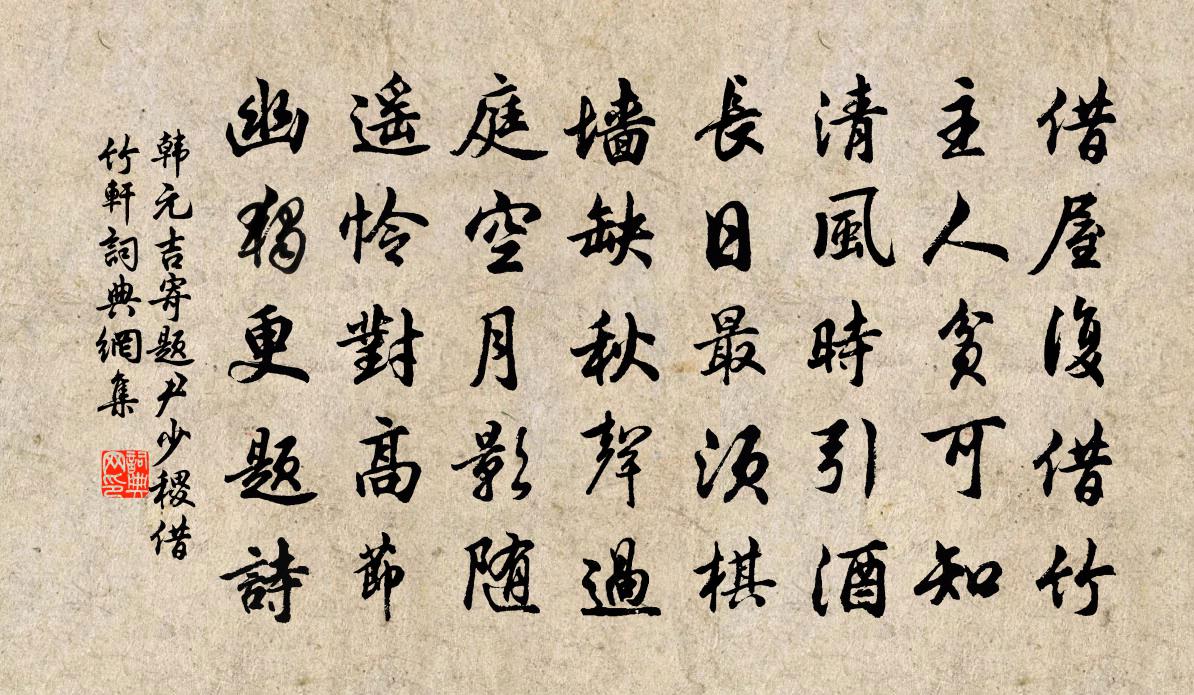 借屋復借竹
主人貧可知
清風時引酒
長日最須棋
墻缺秋聲過
庭空月影随
遥怜對高節
幽獨更題詩
韩元吉寄题尹少稷借
竹軒詞典網集
詞典
网印